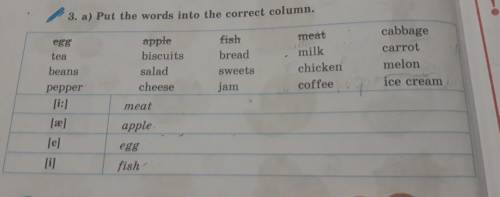 3. a) Put the words into the correct column.
egg apple fish meat cabbage
tea biscuits bread milk carrot
beans salad sweets chicken melon
pepper cheese jam coffee ice cream
[i:] meat
[æ] apple
[e] egg
[i] fish